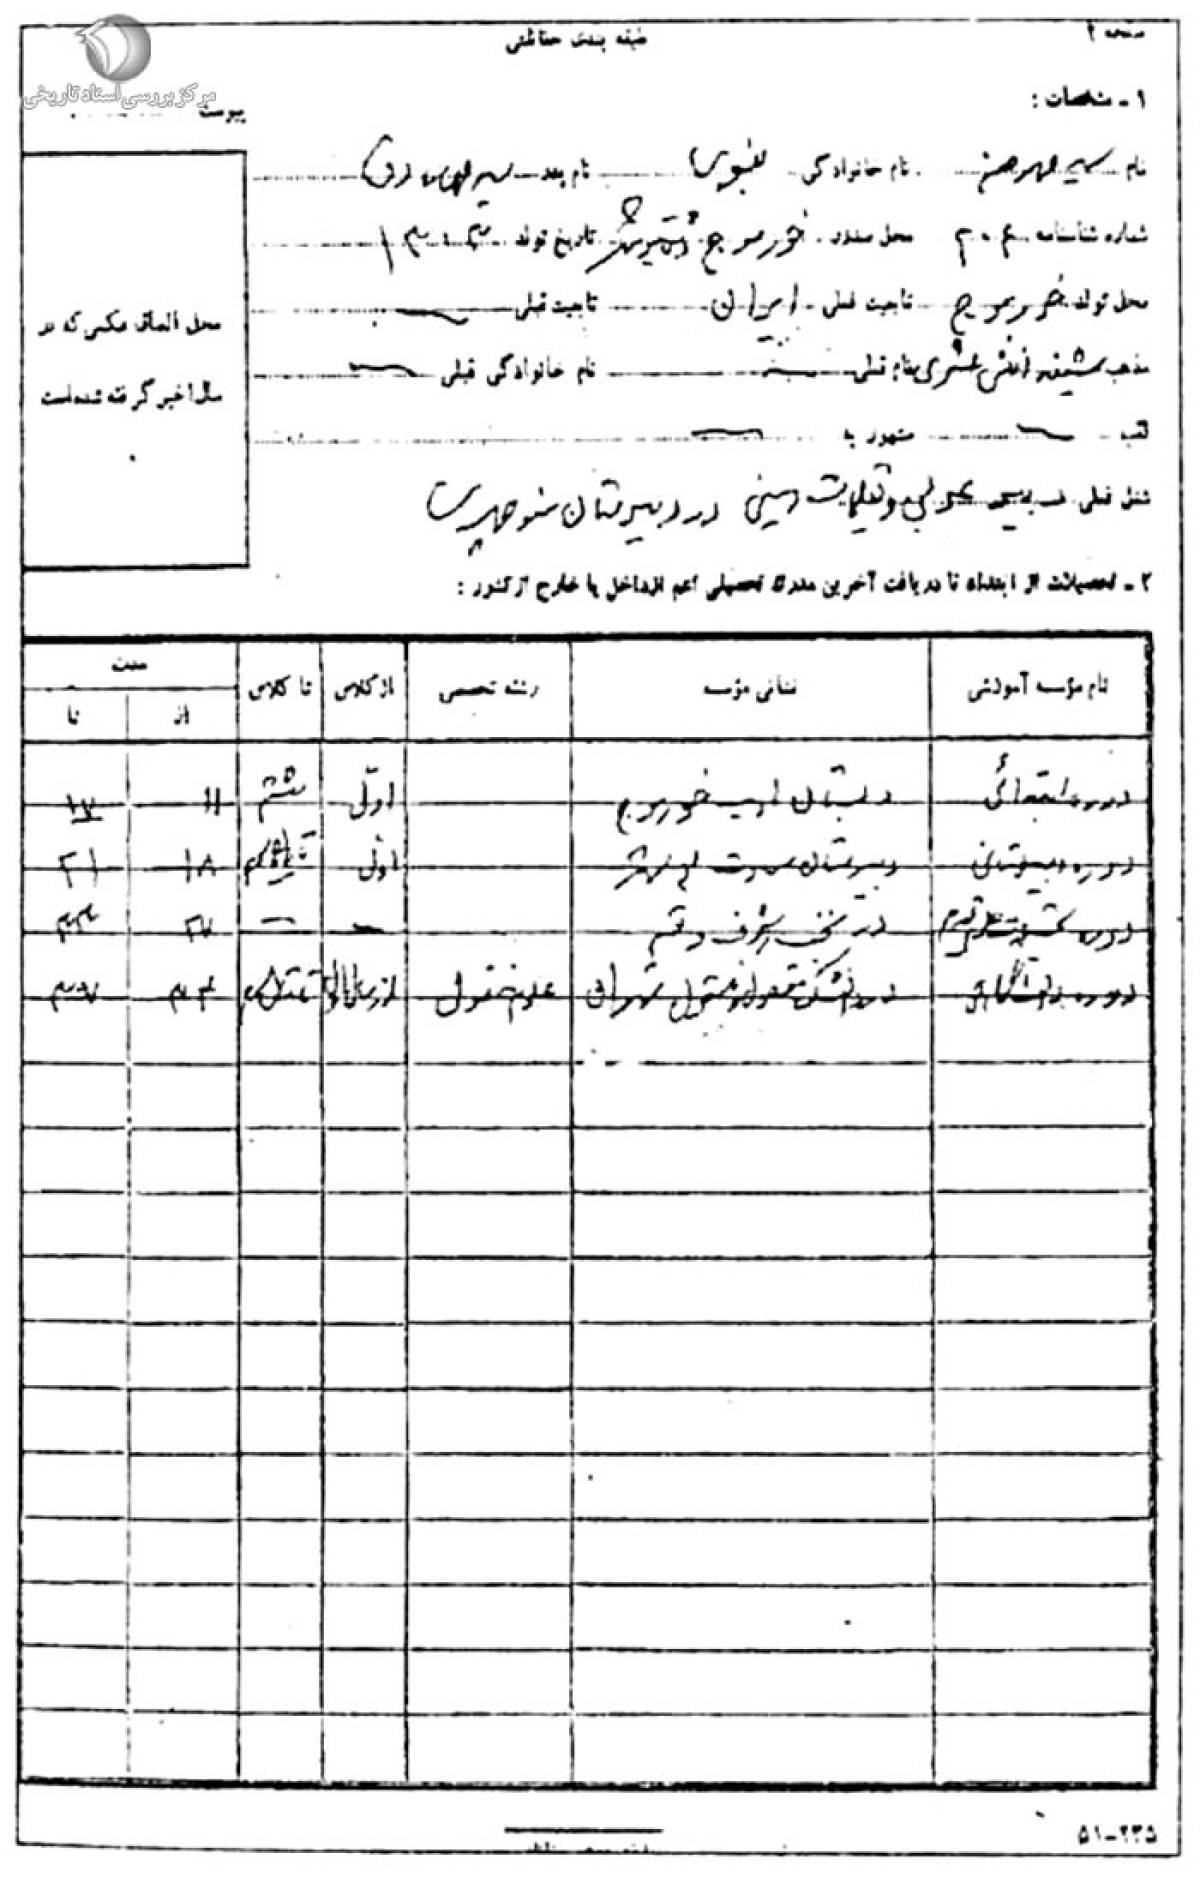 صفحه ۲
طبقه بندی حفاظتی
مرکز بررسی اسناد تاریخی
پیوست
۱ - مشخصات :
نام سید محمد حسن نام خانوادگی نبوی نام پدر سید
شماره شناسنامه ۲۰۶ محل صدور خورموج دشتی بوشهر تاریخ تولد ۱۳۰۳
محل تولد خورموج تابعیت فعلی ایران تابعیت قبلی
مذهب شیعه اثنی عشری نام قبلی نام خانوادگی قبلی
لقب مشهور به
شغل فعلی دبیر عربی و تعلیمات دینی در دبیرستان منوچهری
محل الصاق عکسی که در
سال اخیر گرفته شده است
۲ - تحصیلات از ابتداء تا دریافت آخرین مدرک تحصیلی اعم از داخل یا خارج از کشور :
نام مؤسسه آموزشی نشانی مؤسسه رشته تخصصی از کلاس تا کلاس مدت
از تا
دوره ابتدائی دبستان ادب خورموج اول ششم ۱۱ ۱۷
دوره دبیرستانی دبیرستان سعادت بوشهر اول ۱۸ ۲۱
دوره در نجف اشرف و قم ۲۷ ۳۳
دوره دانشگاهی در دانشکده معقول و منقول تهران علوم منقول از سال اول ۳۴ ۳۷
۵۱-۲۳۵